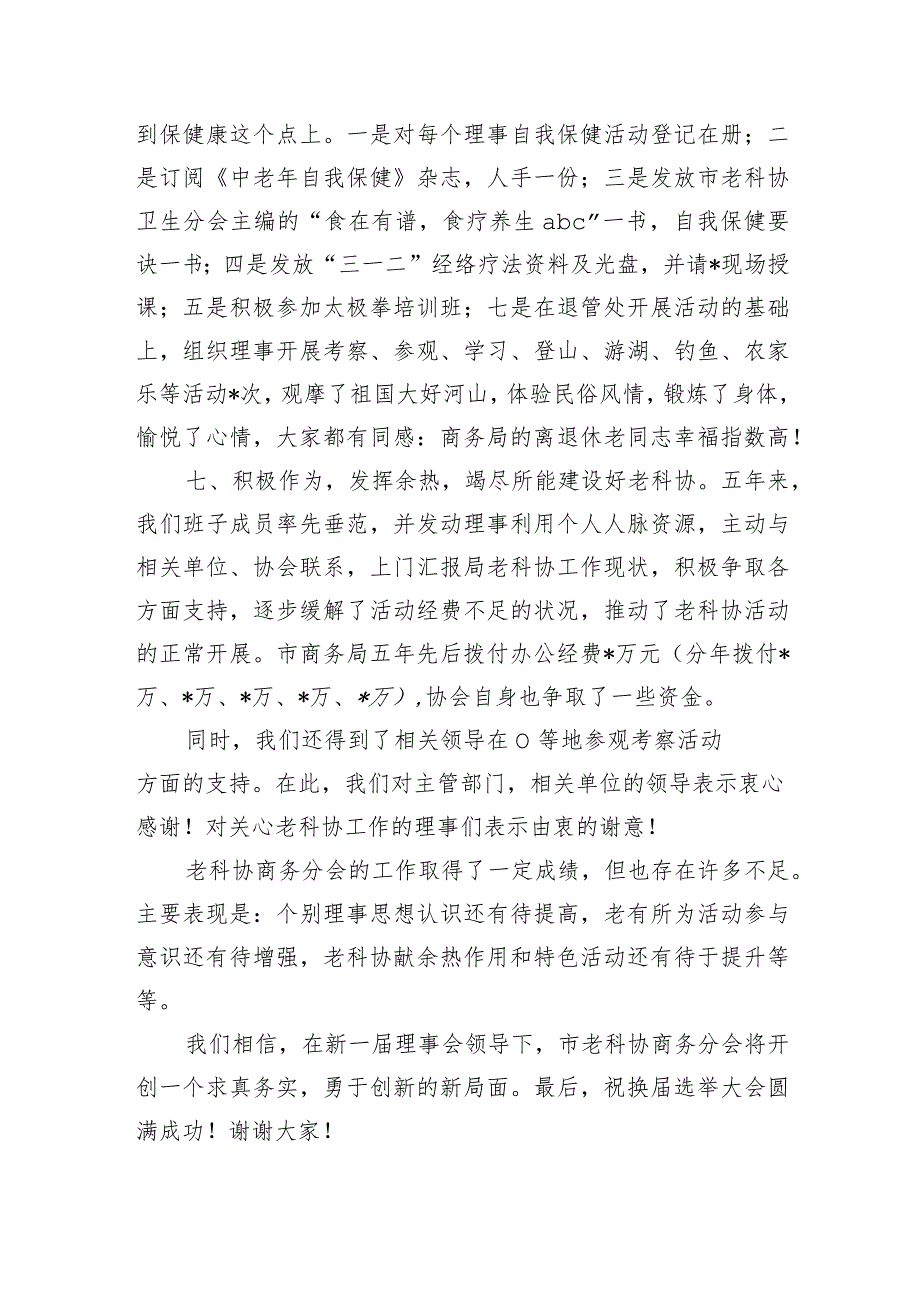 到保健康这个点上。一是对每个理事自我保健活动登记在册；二
是订阅《中老年自我保健》杂志，人手一份；三是发放市老科协
卫生分会主编的“食在有谱，食疗养生abc”一书，自我保健要
诀一书；四是发放“三一二”经络疗法资料及光盘，并请*现场授
课；五是积极参加太极拳培训班；七是在退管处开展活动的基础
上，组织理事开展考察、参观、学习、登山、游湖、钓鱼、农家
乐等活动*次，观摩了祖国大好河山，体验民俗风情，锻炼了身体，
愉悦了心情，大家都有同感：商务局的离退休老同志幸福指数高！
七、积极作为，发挥余热，竭尽所能建设好老科协。五年来，
我们班子成员率先垂范，并发动理事利用个人人脉资源，主动与
相关单位、协会联系，上门汇报局老科协工作现状，积极争取各
方面支持，逐步缓解了活动经费不足的状况，推动了老科协活动
的正常开展。市商务局五年先后拨付办公经费*万元（分年拨付*
万、*万、*万、*万、*万）,协会自身也争取了一些资金。
同时，我们还得到了相关领导在O等地参观考察活动
方面的支持。在此，我们对主管部门，相关单位的领导表示衷心
感谢！对关心老科协工作的理事们表示由衷的谢意！
老科协商务分会的工作取得了一定成绩，但也存在许多不足。
主要表现是：个别理事思想认识还有待提高，老有所为活动参与
意识还有待增强，老科协献余热作用和特色活动还有待于提升等
等。
我们相信，在新一届理事会领导下，市老科协商务分会将开
创一个求真务实，勇于创新的新局面。最后，祝换届选举大会圆
满成功！谢谢大家！